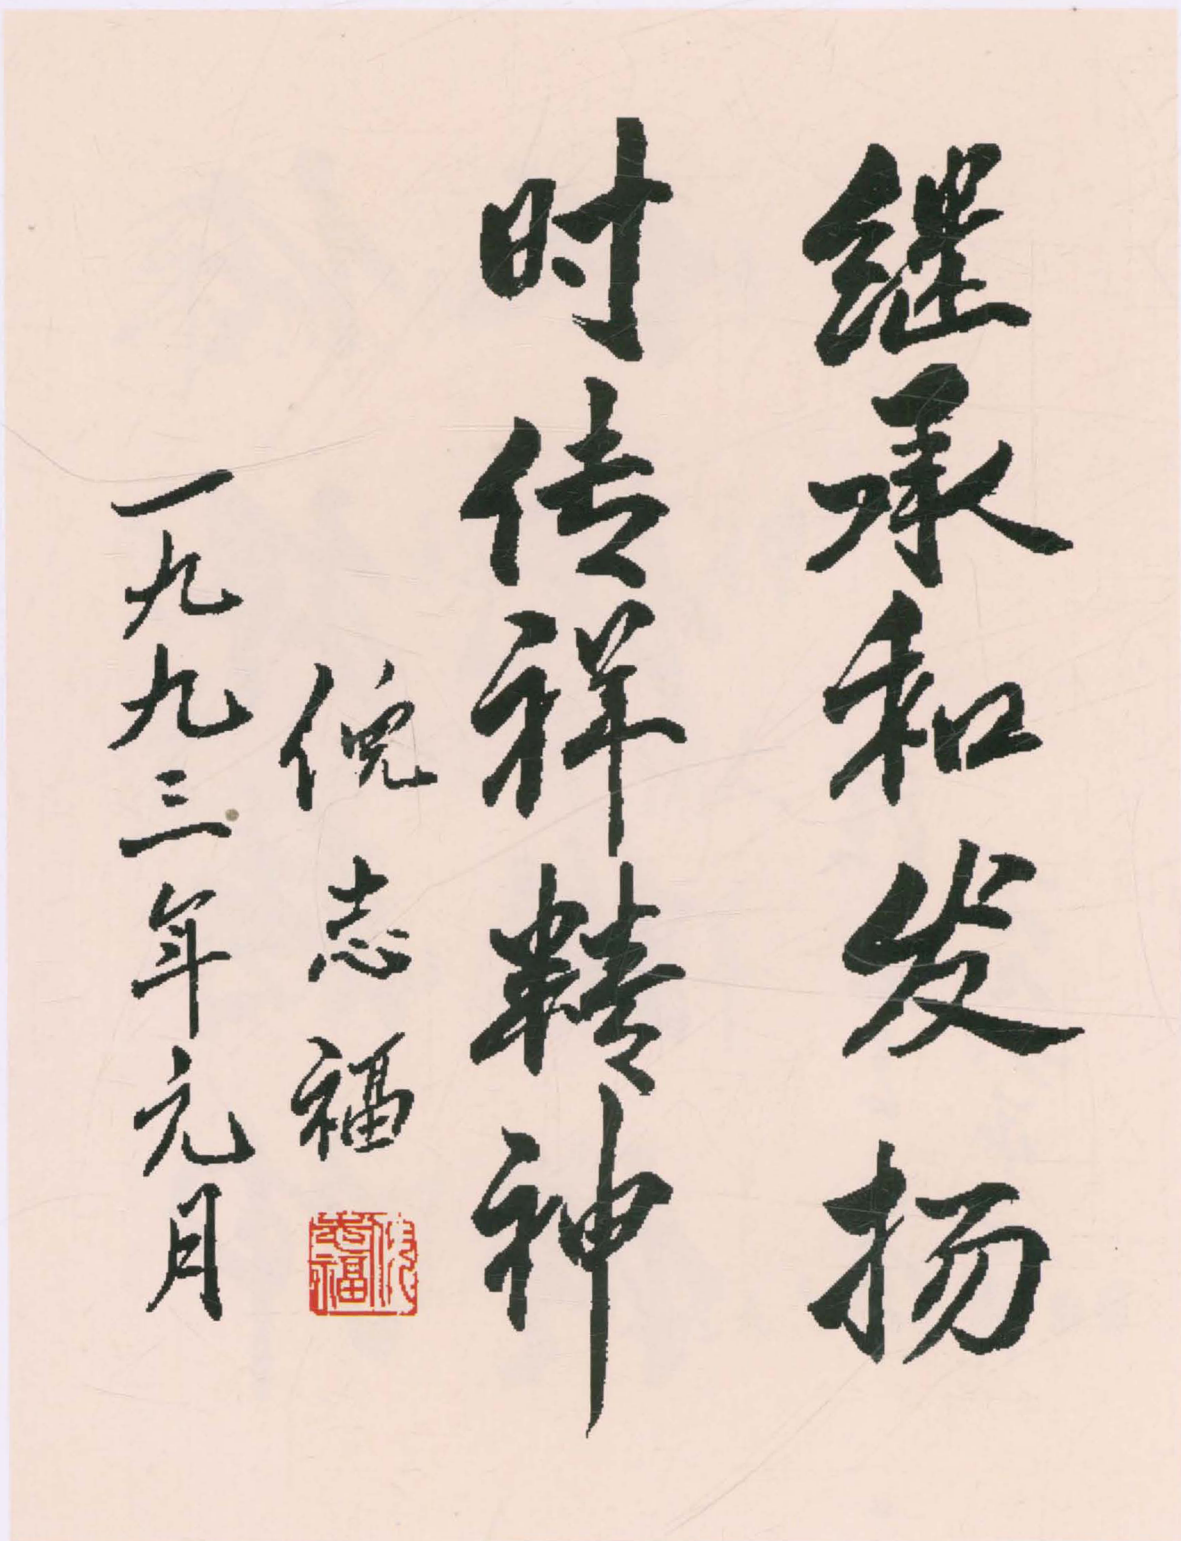 继承和发扬
时传祥精神
倪志福
倪志福
一九九三年元月